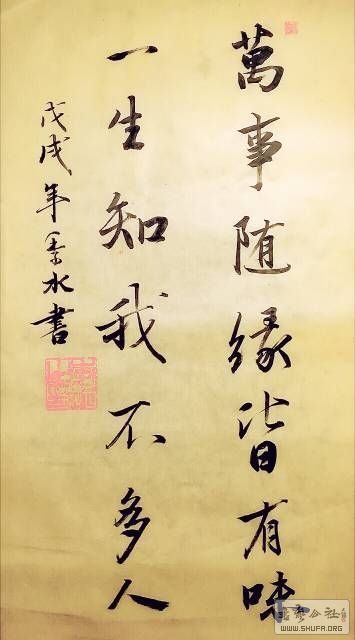 萬事随緣皆有味
一生知我不多人
戊戌年秀水書
WWW.SHUFA.ORG